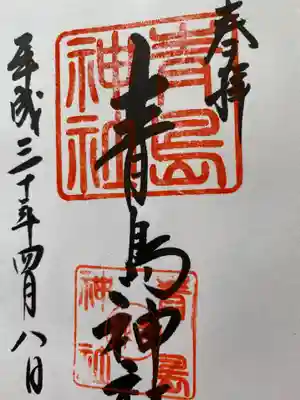 奉拝
青島神社
青島神社
青島神社
平成三十年四月八日